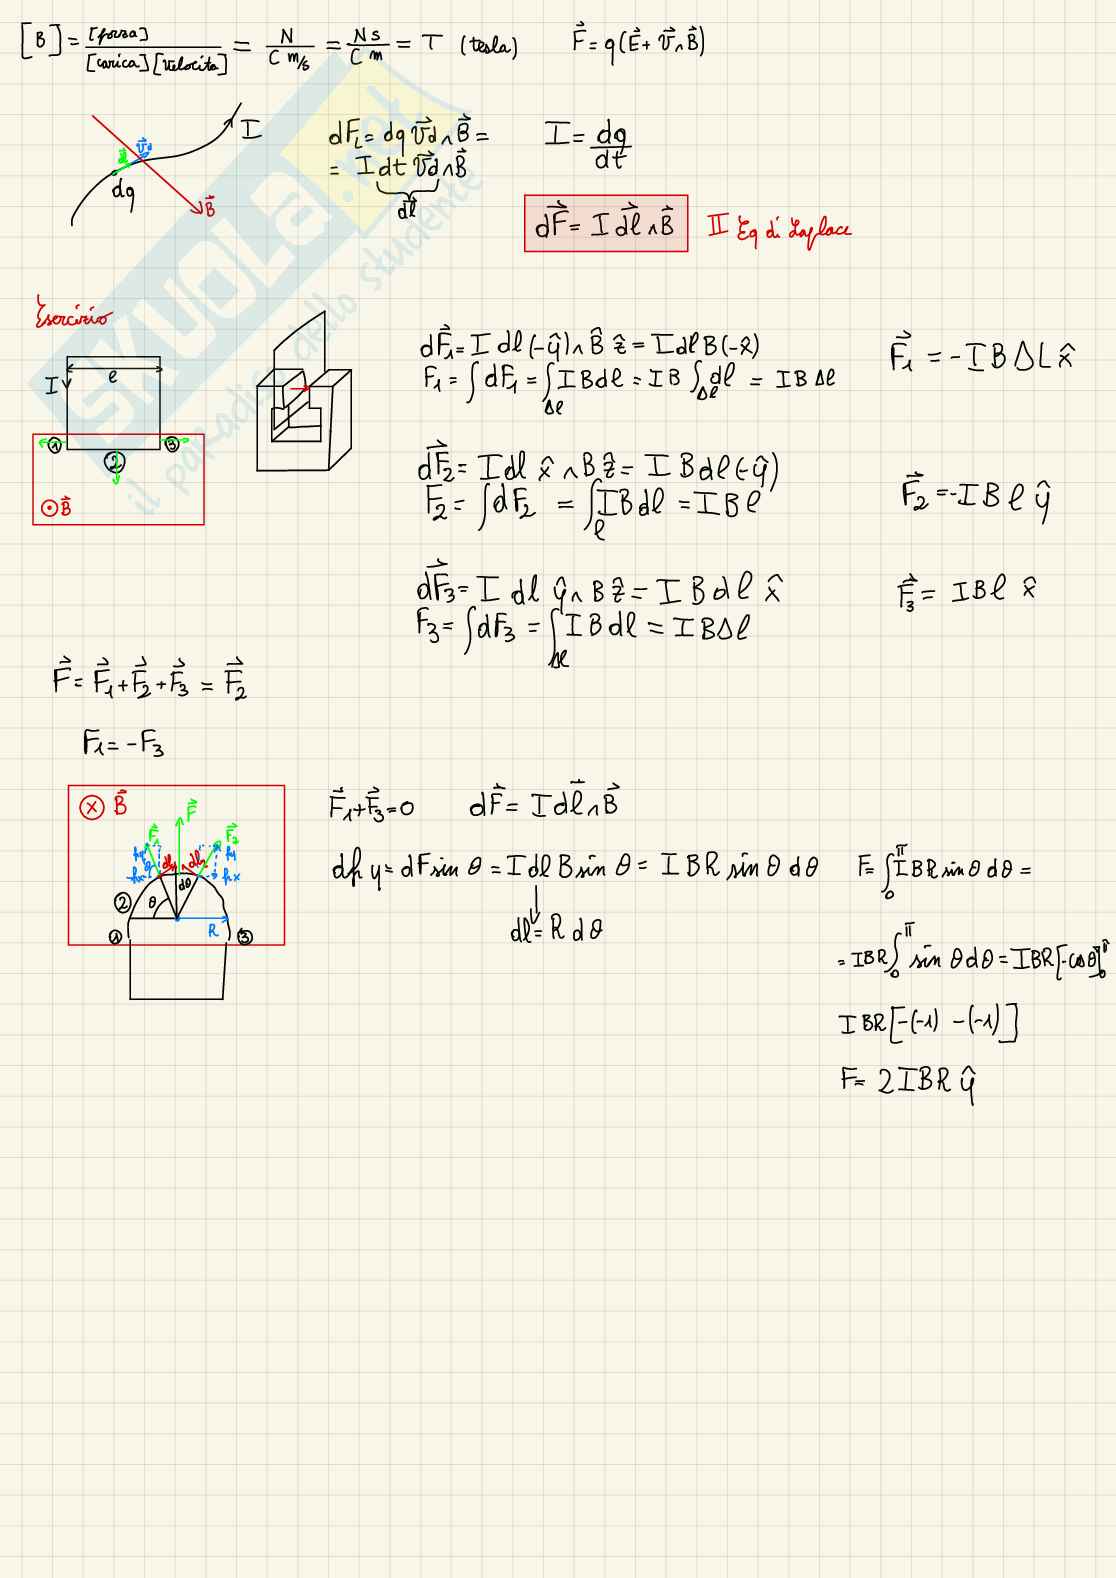 [B] = [forza] / [carica][velocità] = N / C m/s = N s / C m = T (tesla)
F⃗ = q(E⃗ + v⃗ ∧ B⃗)
I
v⃗d
dq
B⃗
dF⃗L = dq v⃗d ∧ B⃗ =
= I dt v⃗d ∧ B⃗
dl⃗
I = dq/dt
dF⃗ = I dl⃗ ∧ B⃗
II Eq di Laplace
SKUOLA.net
il paradiso dello studente
Esercizio
l
I
① ② ③
⊙ B⃗
dF⃗1 = I dl (-ŷ) ∧ B̂ ẑ = I dl B (-x̂)
F1 = ∫ dF1 = ∫Δl I B dl = I B ∫Δl dl = I B Δl
F⃗1 = - I B ΔL x̂
dF⃗2 = I dl x̂ ∧ B ẑ = I B dl (-ŷ)
F2 = ∫ dF2 = ∫l I B dl = I B l
F⃗2 = - I B l ŷ
dF⃗3 = I dl ŷ ∧ B ẑ = I B dl x̂
F3 = ∫ dF3 = ∫Δl I B dl = I B Δl
F⃗3 = I B l x̂
F⃗ = F⃗1 + F⃗2 + F⃗3 = F⃗2
F1 = - F3
⊗ B⃗
F⃗1 F⃗ F⃗2
fy dl1 dl2 fy
fx θ dθ fx
② θ
① R ③
F⃗1 + F⃗3 = 0
dF⃗ = I dl⃗ ∧ B⃗
df y = dF sin θ = I dl B sin θ = I B R sin θ dθ
dl = R dθ
F = ∫0^π I B R sin θ dθ =
= IBR ∫0^π sin θ dθ = IBR [-cosθ]0^π
I BR [-(-1) - (-1)]
F = 2 I B R ŷ